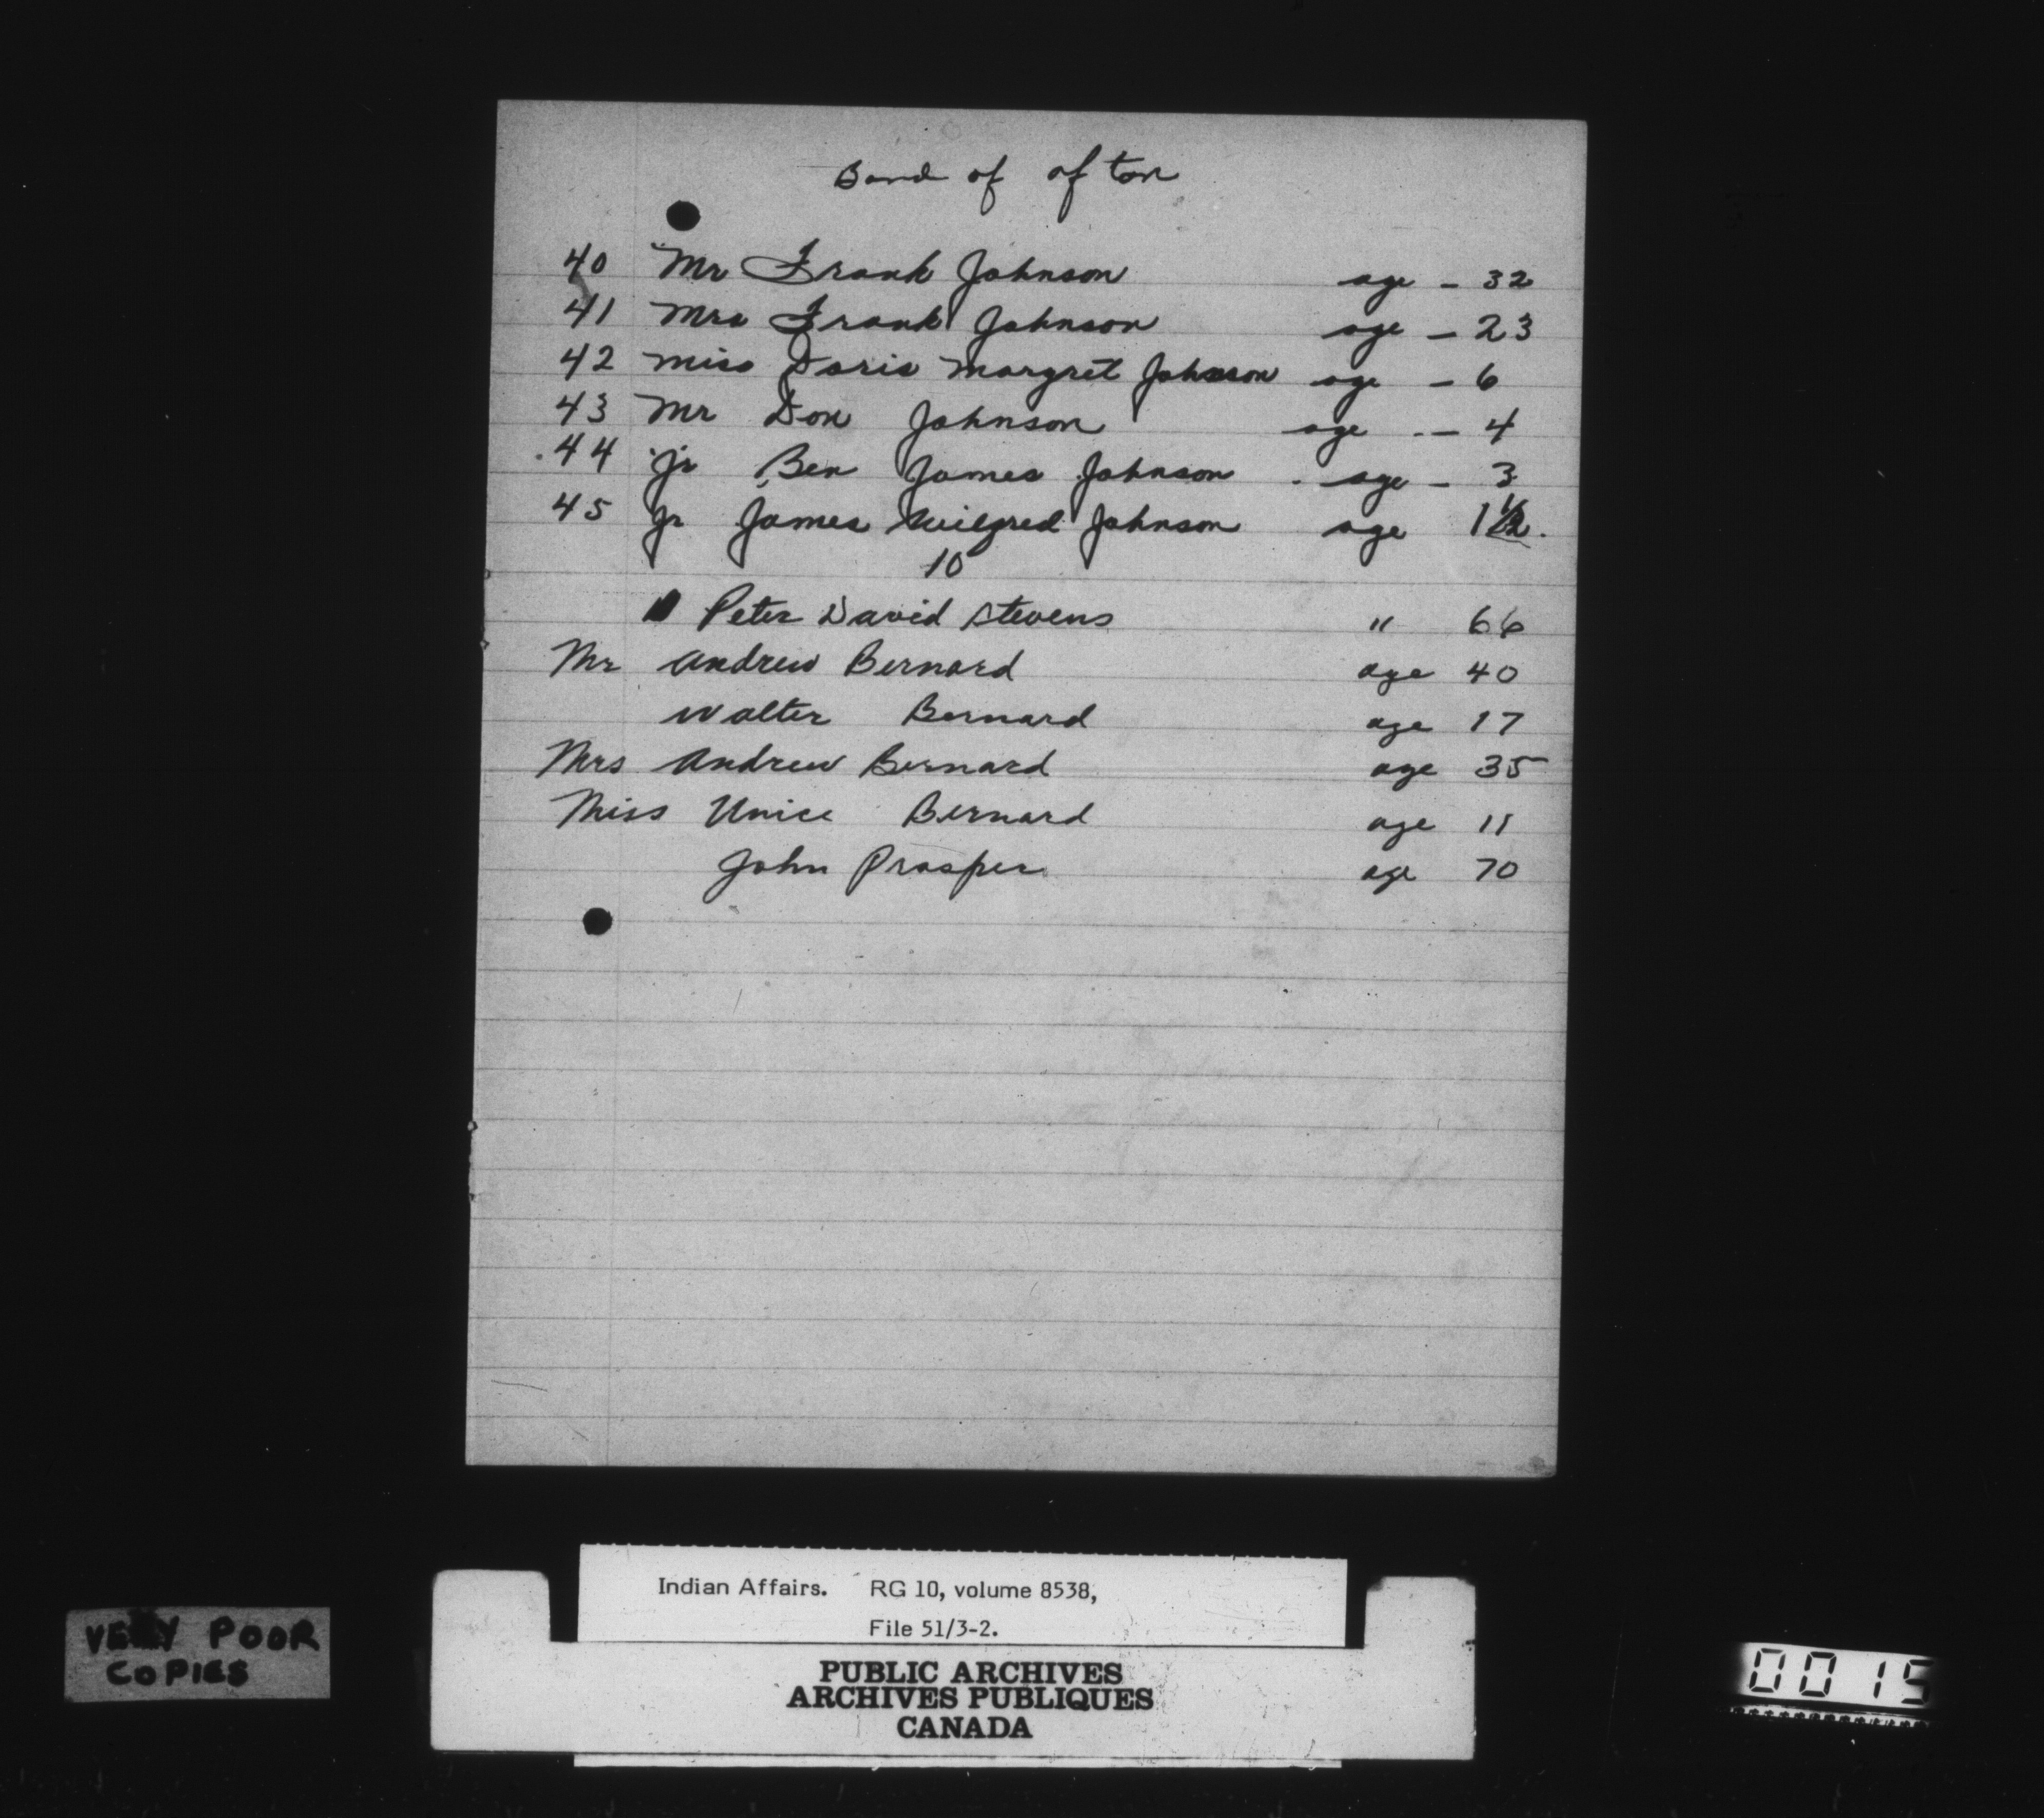 Band of of ton
40 Mr Frank Johnson age - 32
41 Mrs Frank Johnson age - 23
42 Miss Doris Margret Johnson age - 6
43 Mr Don Johnson age - 4
44 Jr Ben James Johnson age - 3
45 Jr James Wilfred Johnson age 1 1/2.
10
Peter David Stevens " 66
Mr Andrew Bernard age 40
Walter Bernard age 17
Mrs Andrew Bernard age 35
Miss Unice Bernard age 11
John Prosper age 70
Indian Affairs. RG 10, volume 8538,
File 51/3-2.
PUBLIC ARCHIVES
ARCHIVES PUBLIQUES
CANADA
VERY POOR
COPIES
0015